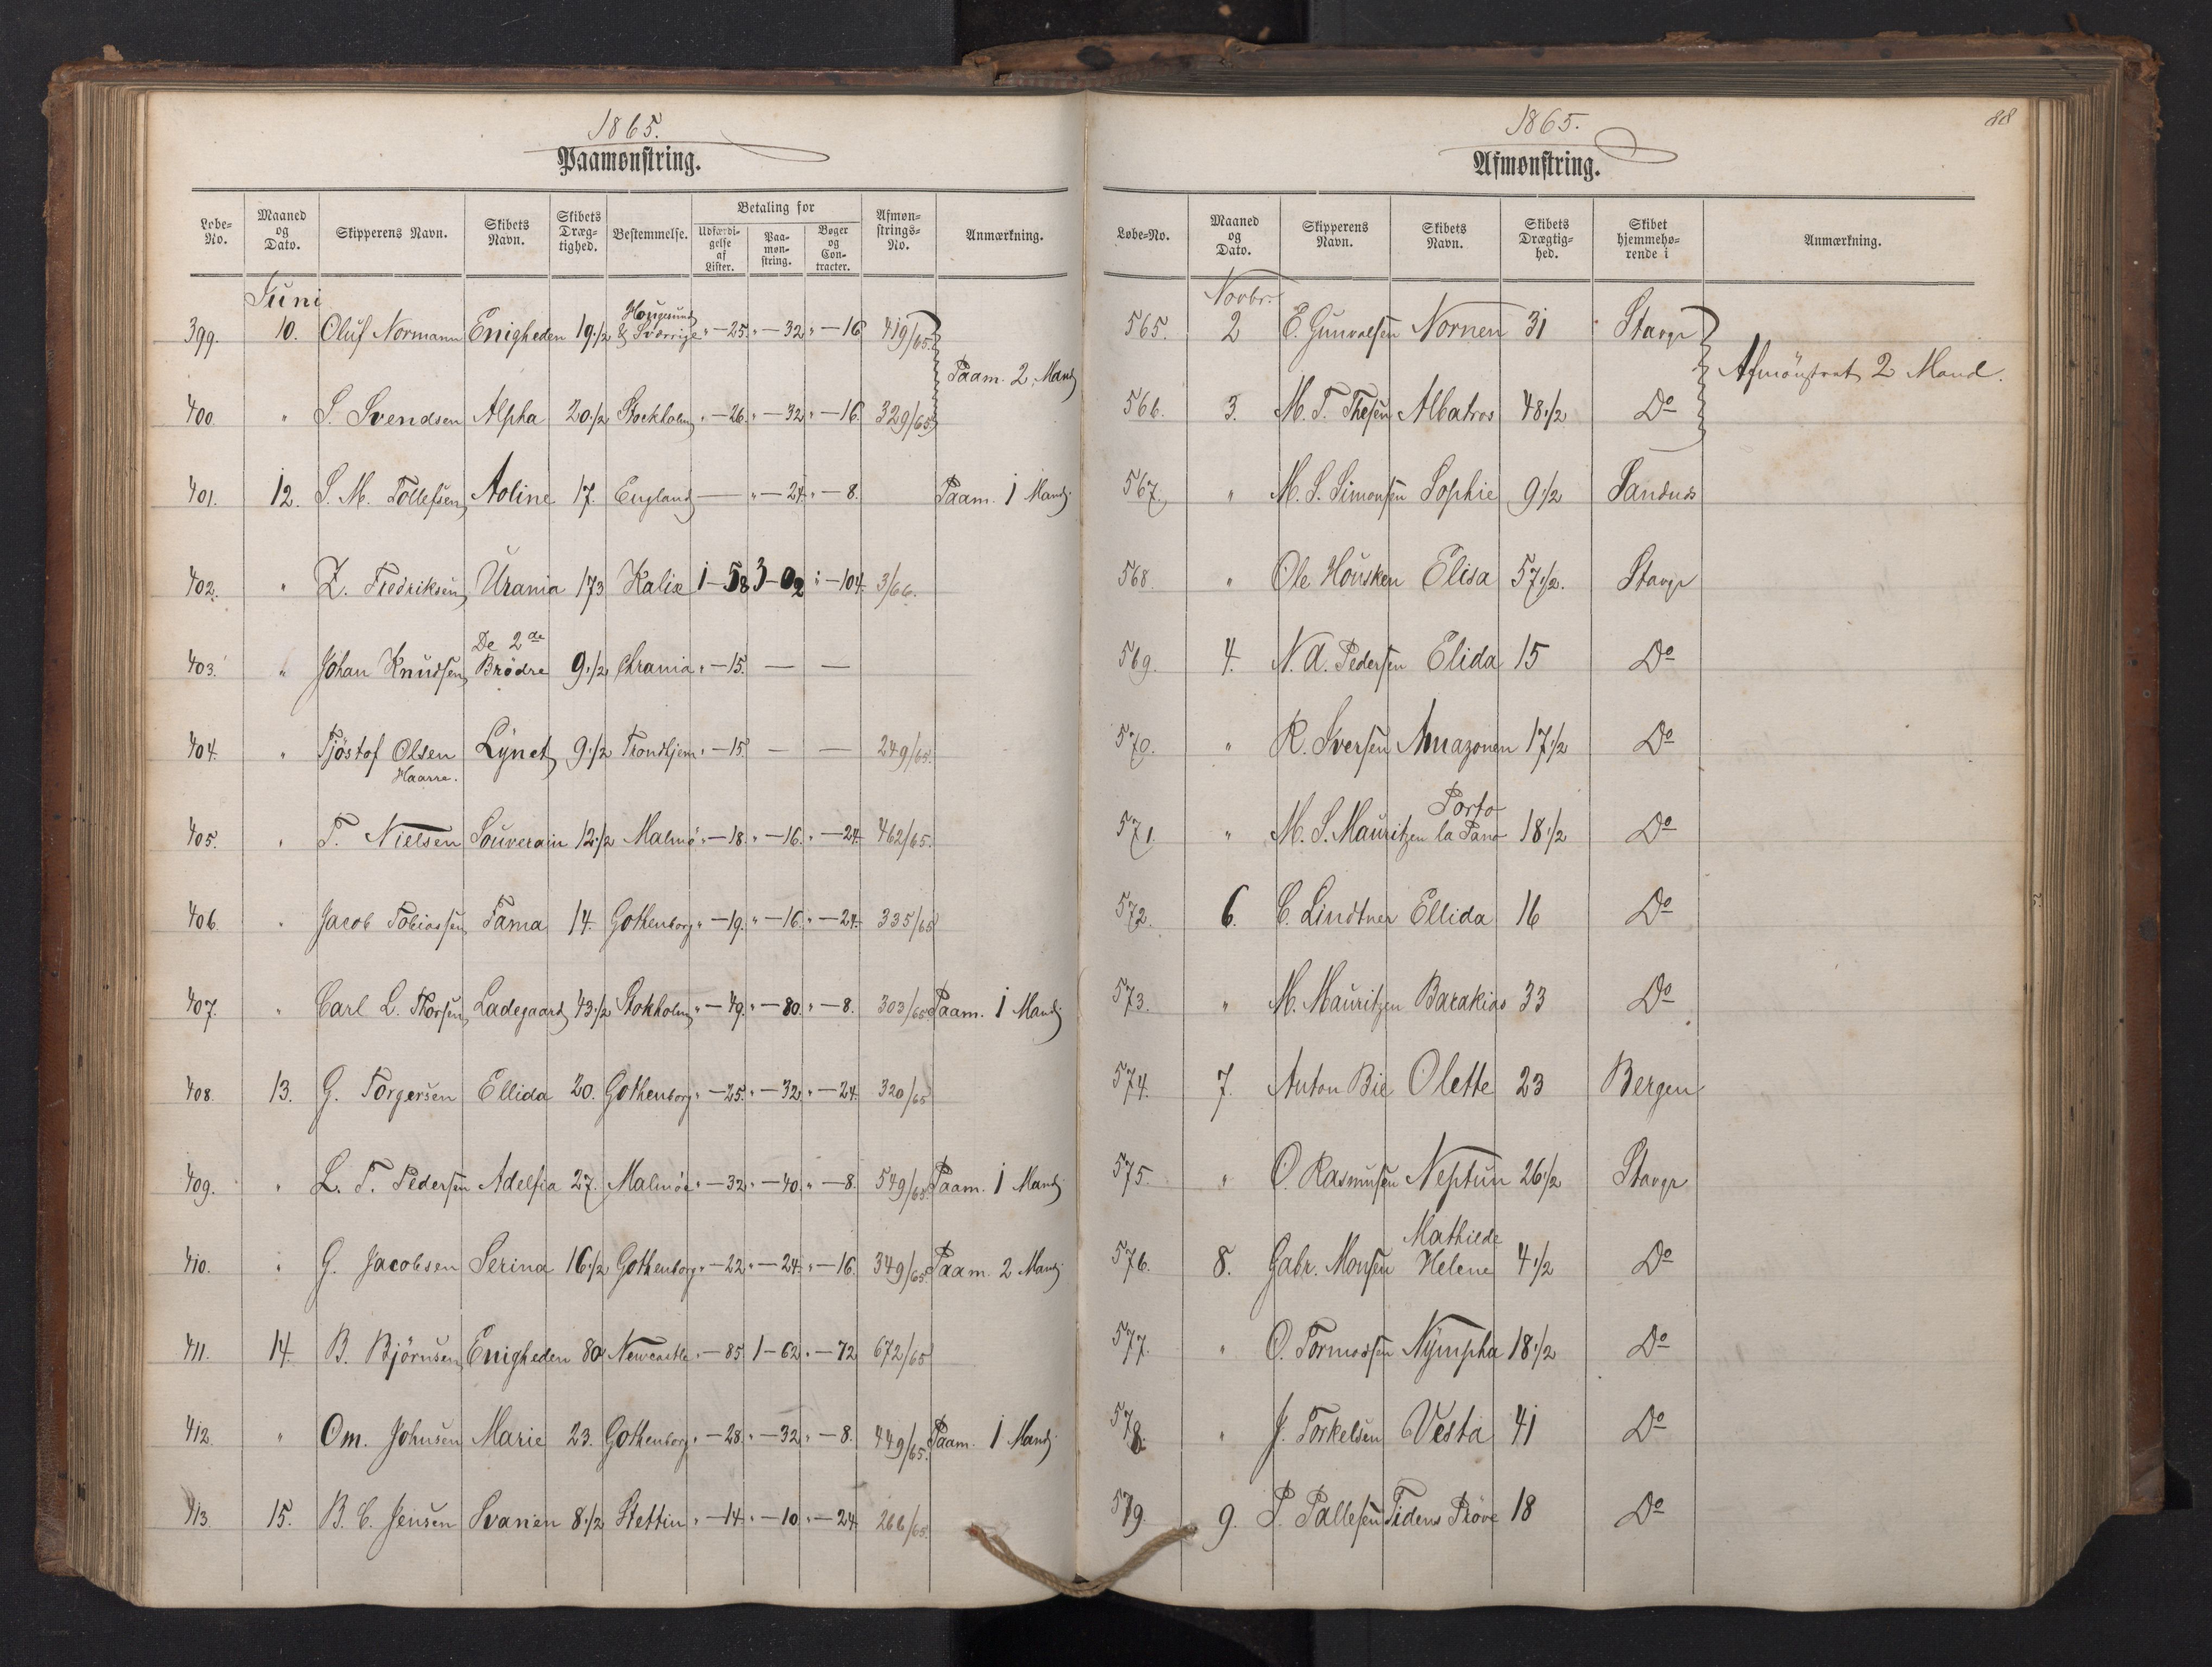 1865.
Paamønstring.
Løbe-No. | Maaned og Dato. | Skipperens Navn. | Skibets Navn. | Skibets Drægtighed. | Bestemmelse. | Betaling for | Udfærdigelse af Lister. | Paamønstring. | Bøger og Contracter. | Afmønstrings-No. | Anmærkning.
Juni
399. 10. Oluf Normann Enigheden 19 1/2 Hougesund & Sverrige " - 25. " - 32 " - 16 419/65.
Paam. 2 Mand
400. " S. Svendsen Alpha 20 1/2 Stockholm " - 26. " - 32 " - 16. 329/65.
401. 12. S. M. Tollefsen Aoline 17. England — " - 24. " - 8. Paam. 1 Mand.
402. " Z. Fredriksen Urania 173 Kalix 1 - 58 3 - 02 " - 104. 3/66.
403. " Johan Knudsen De 2de Brødre 9 1/2 Chrania " - 15. — —
404. " Tjöstof Olsen Haarre. Lynet 9 1/2 Trondhjem " - 15. — — 249/65.
405. " T. Nielsen Souverain 12 1/2 Malmö " - 18. " - 16. " - 24. 462/65.
406. " Jacob Tobiassen Fama 14. Gothenborg " - 19. " - 16. " - 24. 335/65
407. " Carl L. Thorsen Ladegaard 43 1/2 Stokholm " - 49. " - 80. " - 8. 303/65 Paam. 1 Mand.
408. 13. G. Torgersen Ellida 20. Gothenborg " - 25. " - 32. " - 24. 320/65
409. " L. T. Pedersen Adelfia 27. Malmöe " - 32. " - 40. " - 8. 549/65. Paam. 1 Mand.
410. " G. Jacobsen Serina 16 1/2 Gothenborg " - 22 " - 24. " - 16. 349/65 Paam. 2 Mand.
411. 14. B. Björnsen Enigheden 80 Newcastle " - 85 1 - 62 " - 72 672/65
412. " Om. Johnsen Marie 23. Gothenborg " - 28. " - 32. " - 8. 449/65. Paam. 1 Mand.
413. 15. B. C. Jensen Svanen 8 1/2 Stettin " - 14. " - 10. " - 24. 266/65.
88
1865.
Afmønstring.
Løbe-No. | Maaned og Dato. | Skipperens Navn. | Skibets Navn. | Skibets Drægtighed. | Skibet hjemmehørende i | Anmærkning.
Novbr.
565. 2 E. Gunvalsen Nornen 31 Stavgr
Afmönstret 2 Mand.
566. 3. M. T. Thesen Albatros 48 1/2 Do
567. " M. S. Simonsen Sophie 9 1/2 Sandnes
568. " Ole Housken Elisa 57 1/2. Stavgr
569. 4. N. A. Pedersen Elida 15 Do
570. " R. Iversen Amazonen 17 1/2 Do
571. " M. S. Mauritzen Porto la Pano 18 1/2 Do
572. 6. C. Lindtner Ellida 16 Do
573. " M. Mauritzen Barakias 33 Do
574. 7. Anton Bie Olette 23 Bergen
575. " O. Rasmusen Neptun 26 1/2 Stavgr
576. 8. Gabr. Monsen Mathilde Helene 4 1/2 Do
577. " O. Tormodsen Nympha 18 1/2 Do
578. " J. Torkelsen Vesta 41 Do
579. 9. P. Pallesen Tidens Pröve 18 Do